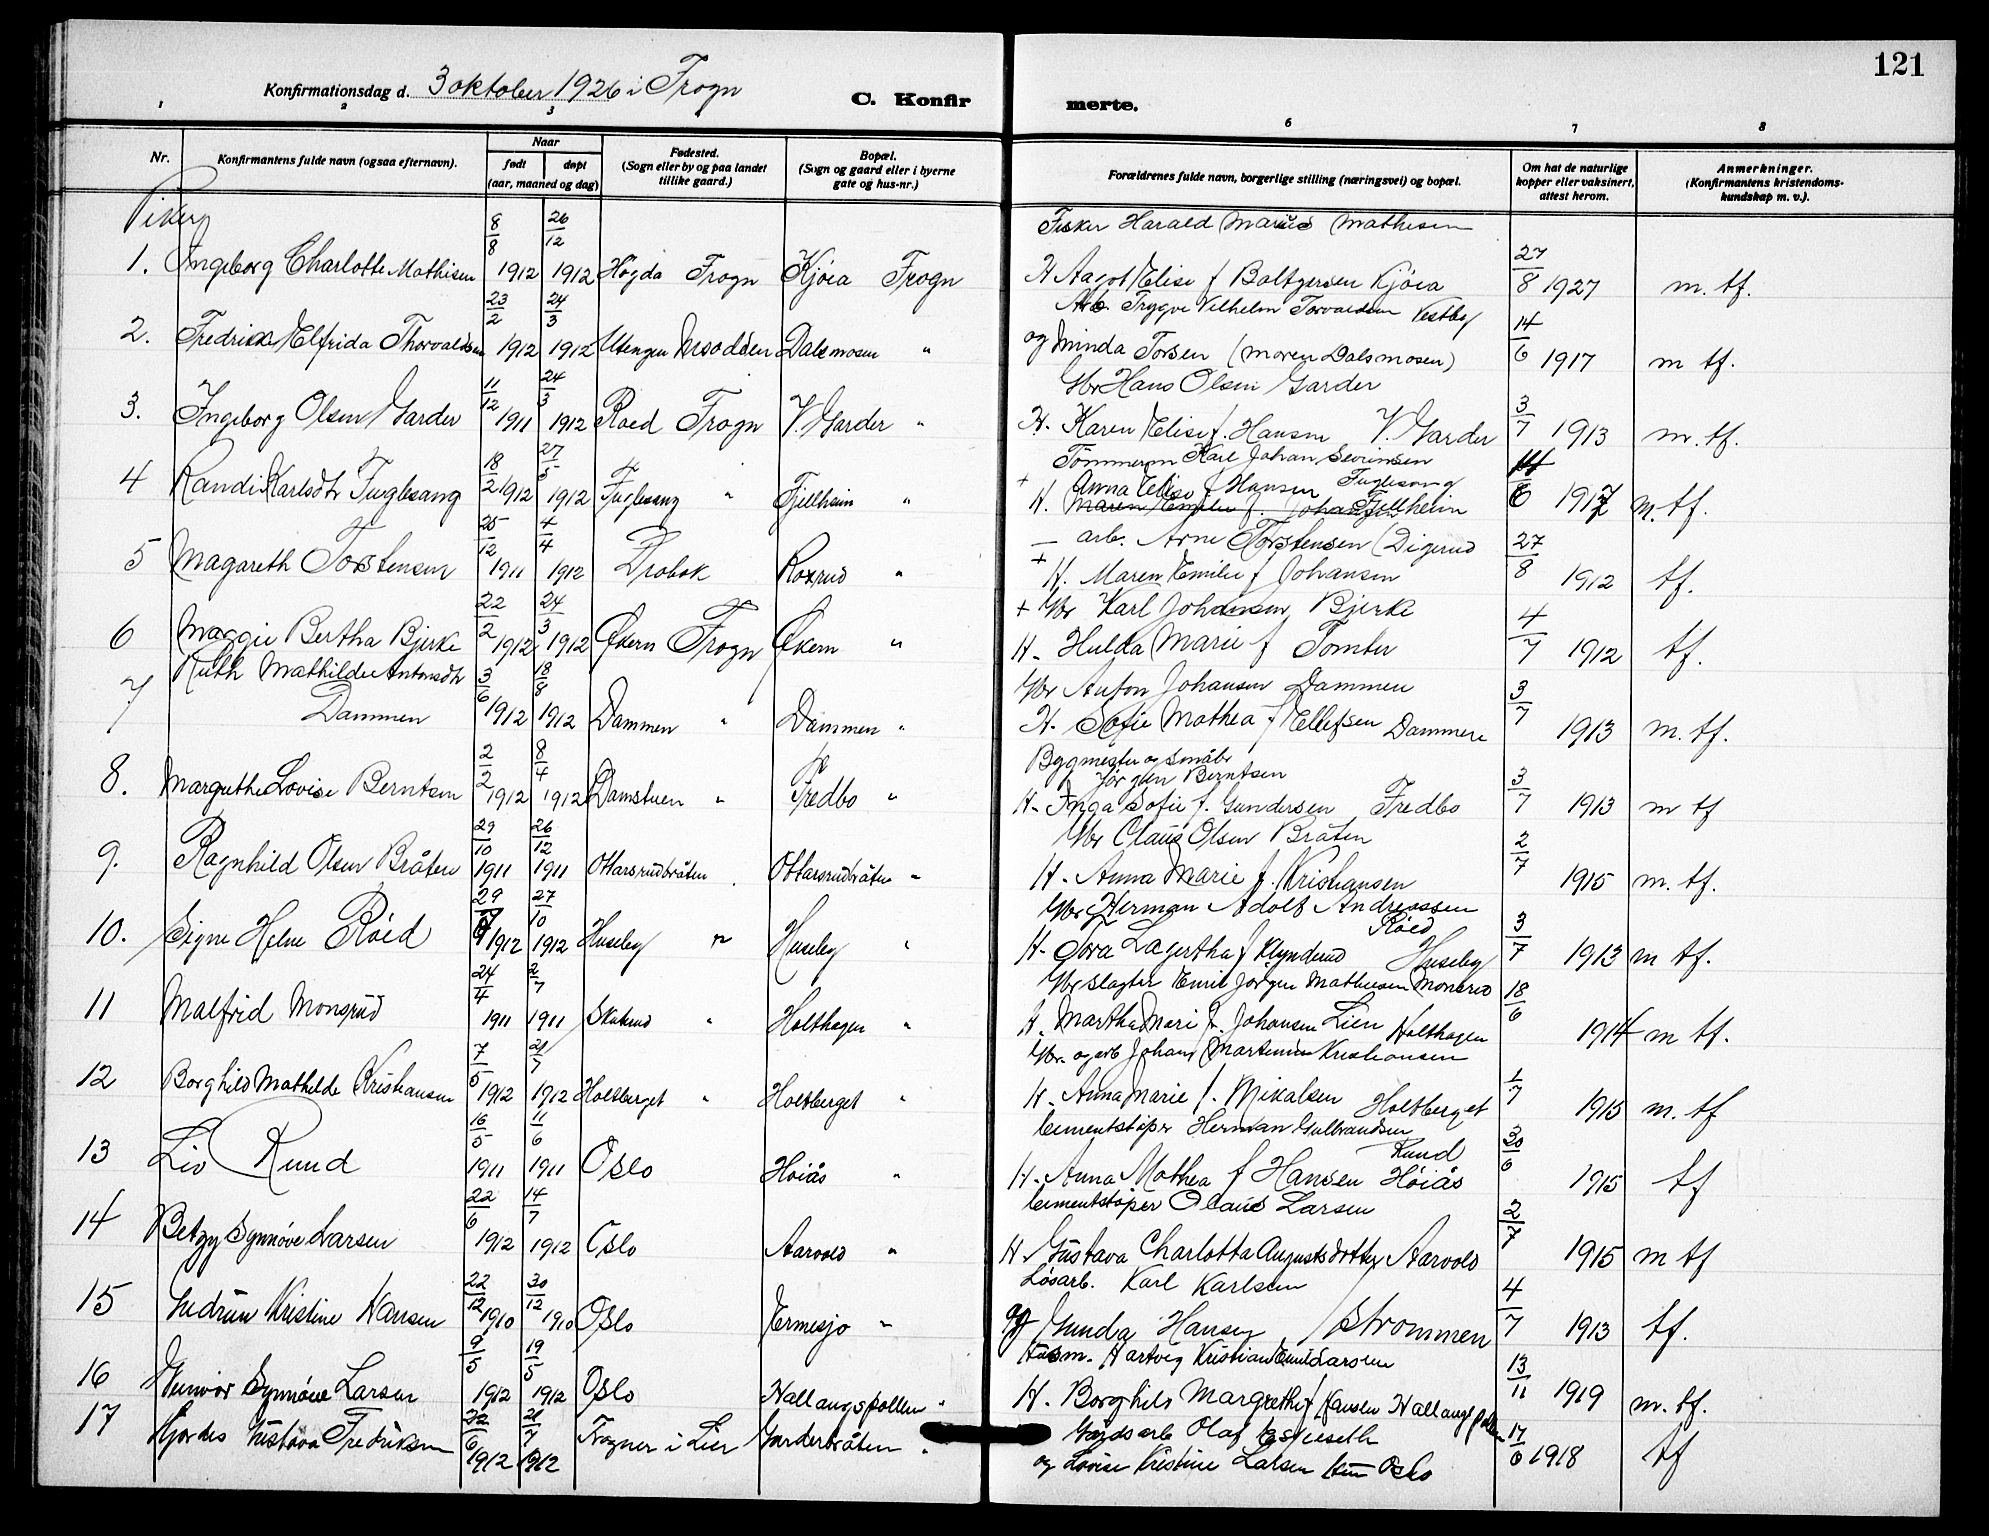 121
Konfirmationsdag d. 3 oktober 1926 i Frogn
C. Konfirmerte.
1 2 3 6 7 8
Nr. Konfirmantens fulde navn (ogsaa efternavn). Naar født døpt (aar, maaned og dag) Fødested. (Sogn eller by og paa landet tillike gaard.) Bopæl. (Sogn og gaard eller i byerne gate og hus-nr.) Forældrenes fulde navn, borgerlige stilling (næringsvei) og bopæl. Om hat de naturlige kopper eller vaksinert, attest herom. Anmerkninger. (Konfirmantens kristendomskundskap m. v.).
Piker
1. Ingeborg Charlotte Mathisen 8/8 1912 26/12 1912 Høgda Frogn Kjøia Frogn Fisker Harald Marius Mathisen
H Aagot Elise f Boltgersen Kjøia 27/8 1927 m. tf.
2. Fredrikke Elfrida Thorvaldsen 23/2 1912 24/3 1912 Utengen Nesodden Dalsmosen " Arb. Trygve Vilhelm Torvaldsen Vestby
og Minda Torsen (moren Dalsmosen) 14/6 1917 m tf.
3. Ingeborg Olsen Garder 11/12 1911 24/3 1912 Roed Frogn V. Garder " Gbr Hans Olsen Garder
H. Karen Elise f. Hansen V. Garder 3/7 1913 m. tf.
4 Randi Karlsdtr Fuglesang 18/2 1912 27/5 1912 Fuglesang " Fjellheim " Tømmerm Karl Johan Sevrinsen Fuglesang
+ H. Anna Elise f Hansen Fjellheim 6 1917 m. tf.
5 Magareth Torstensen 25/12 1911 4/4 1912 Drøbak Roxrud " arb. Arne Torstensen (Digerud
+ H. Maren Emilie f Johansen 27/8 1912 tf.
6 Maggie Bertha Bjerke 22/2 1912 24/3 1912 Økern Frogn Økern " + Gbr Karl Johansen Bjerke
H. Hulda Marie f Tomter 4/7 1912 tf.
7 Ruth Mathilde Antonsdtr Dammen 3/6 1912 18/8 1912 Dammen " Dammen " Gbr Anton Johansen Dammen
H. Sofie Mathea f Ellefsen Dammen 3/7 1913 m. tf.
8. Margrethe Lovise Berntsen 2/2 1912 8/4 1912 Damstuen " Fredbo " Bygmester og småbr Jörgen Berntsen
H. Inga Sofie f. Gundersen Fredbo 3/7 1913 m tf
9. Ragnhild Olsen Bråten 29/10 1911 26/12 1911 Ottarsrudbråten . Ottarsrudbråten " Gbr Claus Olsen Bråten
H. Anna Marie f. Kristiansen 2/7 1915 m. tf.
10. Signe Helene Röed 29/9 1912 27/10 1912 Huseby " Huseby " Gbr Herman Adolf Andreassen Röed
H. Tora Lagertha f Klynderud Huseby 3/7 1913 m tf.
11 Malfrid Monsrud 24/4 1911 2/7 1911 Skakrud " Holthagen " Gbr slagter Emil Jörgen Mathiesen Monsrud
H. Martha Mari f. Johansen Lien Holthagen 18/6 1914 m tf.
12 Borghild Mathilde Kristiansen 7/5 1912 21/7 1912 Holtberget " Holtberget " Gbr. og arb Johan Martinius Kristiansen
H. Anna Marie f. Mikalsen Holtberget 1/7 1915 m. tf
13 Liv Ruud 16/5 1911 11/6 1911 Oslo Höiås " Cementstöper Herman Gulbrandsen Ruud
H. Anna Mathea f Hansen Höiås 30/6 1915 tf
14 Betzy Synnöve Larsen 22/6 1912 14/7 1912 Oslo Aarvold " Cementstöper Olaus Larsen
H. Gustava Charlotta Augustsdotter Aarvold 2/7 1915 m tf
15 Gudrun Kristine Hansen 22/12 1910 30/12 1910 Oslo Ermesjo " Lösarb. Karl Karlsen
og Gunda Hansen Strömmen 4/7 1913 tf.
16 Gunvor Synnöve Larsen 9/5 1912 19/5 1912 Oslo Hallangspollen " Hartvig Kristian Emil Larsen
H. Borghild Margrethe f Hansen Hallangspollen 13/11 1919 m. tf.
17 Hjördis Gustava Fredriksen 22/6 1912 21/7 1912 Frogner i Lier Garderbråten " Gårdsarb Olaf Espeseth
og Lovise Kristine Larsen Oslo 17/6 1918 tf